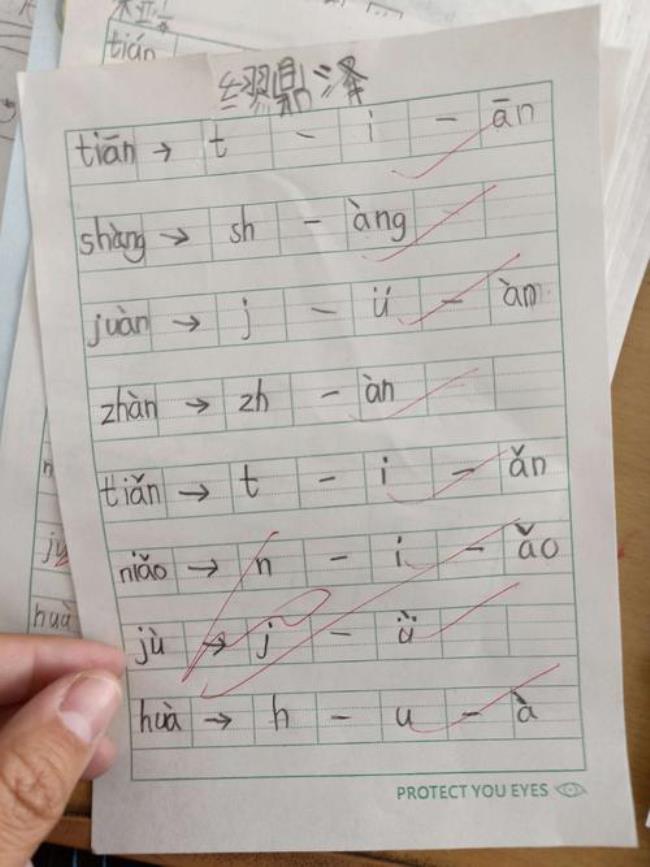 tián
鼎泽
tiān → t - i - ān
shàng → sh - àng
juàn → j - ü - àn
zhàn → zh - àn
tiǎn → t - i - ǎn
niǎo → n - i - ǎo
jù → j - ǜ
huà → h - u - à
huà
PROTECT YOU EYES